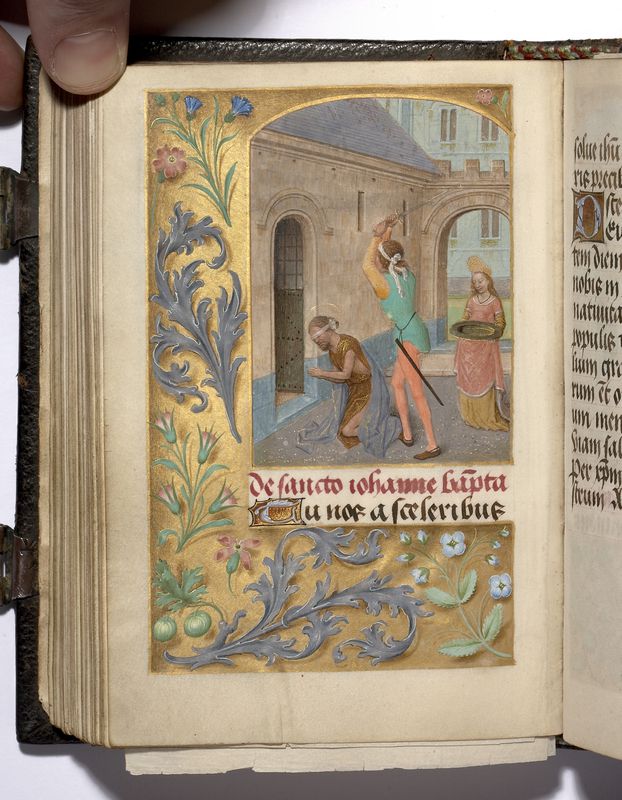 De sancto iohanne bap̄ta
Tu nos a sceleribus
solue ihū
ris precib
tem diem
nobis in
natiuita
populis t
lium gra
rum et o
um men
viam sal
Per xp̄m
strum A